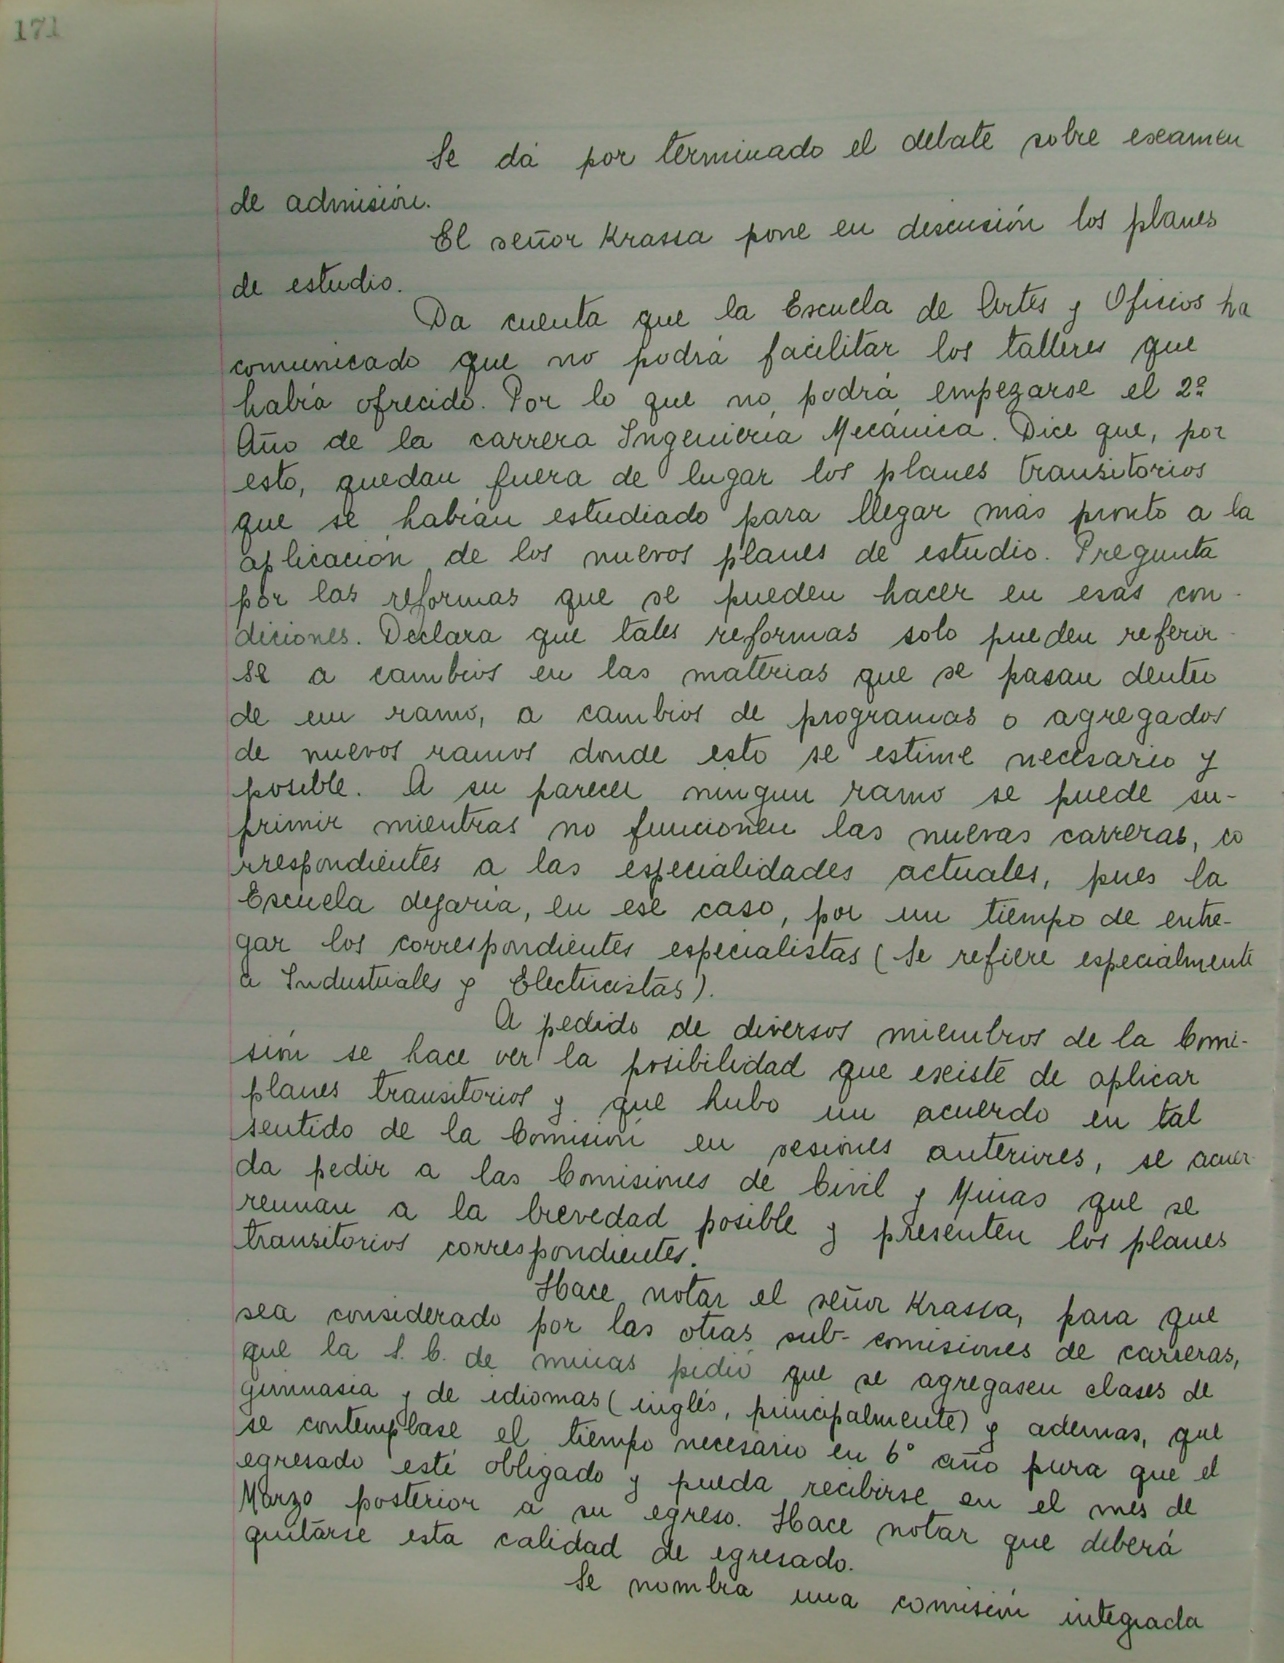 171
Se dá por terminado el debate sobre examen
de admisión.
El señor Krassa pone en discusión los planes
de estudio.
Da cuenta que la Escuela de Artes y Oficios ha
comunicado que no podrá facilitar los talleres que
había ofrecido. Por lo que no podrá empezarse el 2º
Año de la carrera Ingeniería Mecánica. Dice que, por
esto, quedan fuera de lugar los planes transitorios
que se habían estudiado para llegar más pronto a la
aplicación de los nuevos planes de estudio. Pregunta
por las reformas que se pueden hacer en esas con-
diciones. Declara que tales reformas solo pueden referir-
se a cambios en las materias que se pasan dentro
de un ramo, a cambios de programas o agregados
de nuevos ramos donde esto se estime necesario y
posible. A su parecer ningun ramo se puede su-
primir mientras no funcionen las nuevas carreras, co
rrespondientes a las especialidades actuales, pues la
Escuela dejaría, en ese caso, por un tiempo de entre-
gar los correspondientes especialistas (Se refiere especialmente
a Industriales y Electricistas).
A pedido de diversos miembros de la Comi-
sión se hace ver la posibilidad que existe de aplicar
planes transitorios y que hubo un acuerdo en tal
sentido de la Comisión en sesiones anteriores, se acuer-
da pedir a las Comisiones de Civil y Minas que se
reunan a la brevedad posible y presenten los planes
transitorios correspondientes.
Hace notar el señor Krassa, para que
sea considerado por las otras sub-comisiones de carreras,
que la S. C. de minas pidió que se agregasen clases de
gimnasia y de idiomas (inglés, principalmente) y ademas, que
se contemplase el tiempo necesario en 6° año para que el
egresado esté obligado y pueda recibirse en el mes de
Marzo posterior a su egreso. Hace notar que deberá
quitarse esta calidad de egresado.
Se nombra una comisión integrada